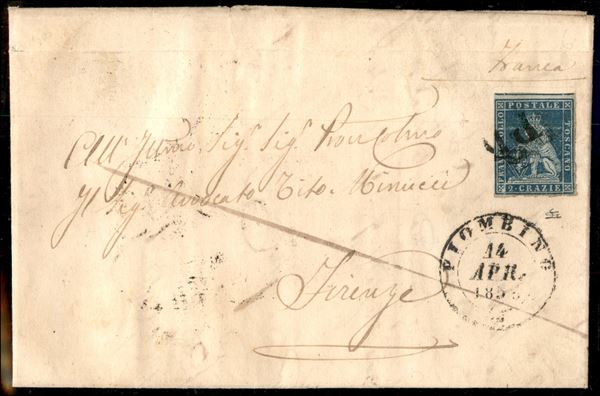 Franca
FRANCOBOLLO
POSTALE
TOSCANO
2 · CRAZIE
PD
All' Illmo Sig.r Sig.r Pron Colmo
Il Sig.r Avvocato Tito Minucci
Firenze
PIOMBINO
14
APR.